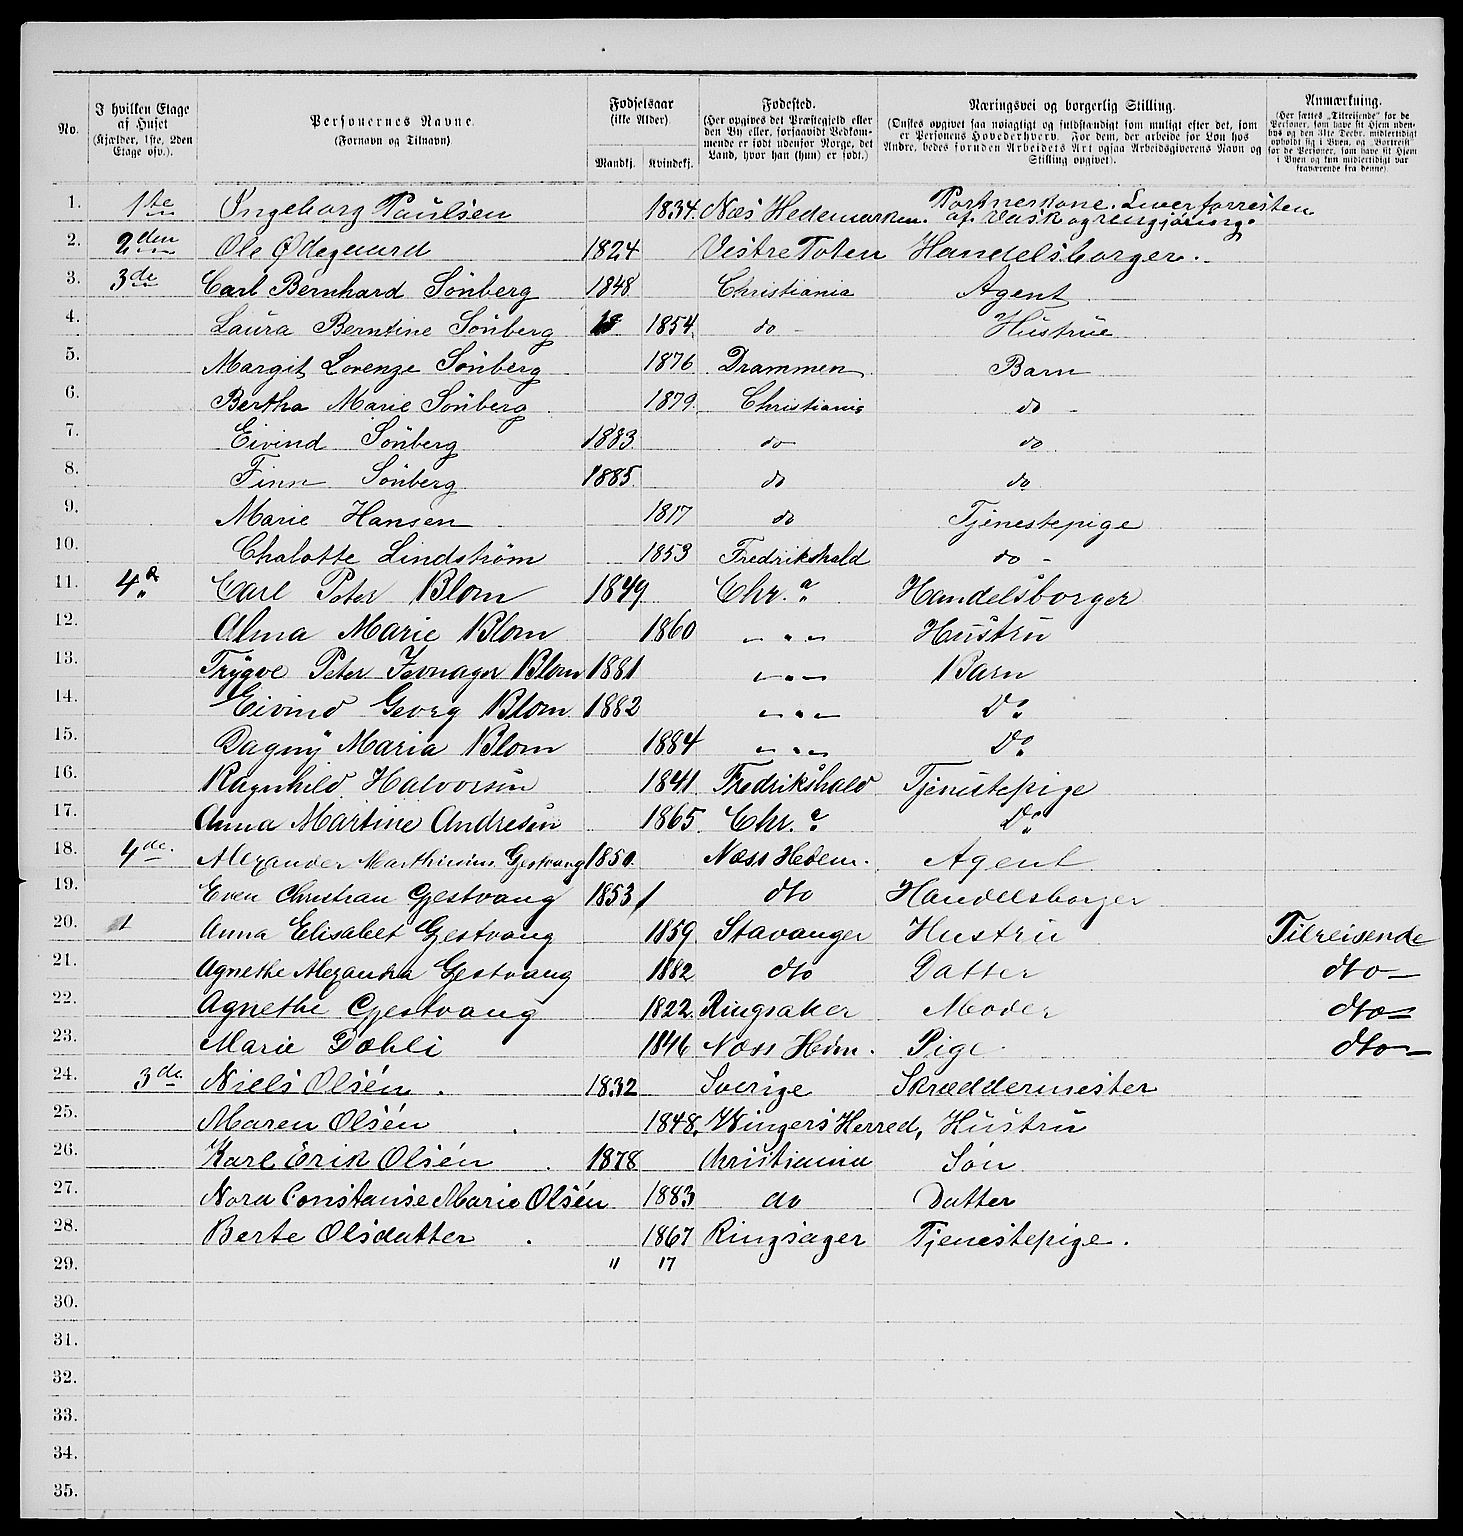 No. | I hvilken Etage af Huset (Kjælder, 1ste, 2den Etage osv.). | Personernes Navne. (Fornavn og Tilnavn) | Fødselsaar (ikke Alder). Mandkj. | Kvindekj. | Fødested. (Her opgives det Præstegjeld eller den By eller, forsaavidt Vedkommende er født udenfor Norge, det Land, hvor han (hun) er født.) | Næringsvei og borgerlig Stilling. (Ønskes opgivet saa nøiagtigt og fuldstændigt som muligt efter det, som er Personens Hovederhverv. For dem, der arbeide for Løn hos Andre, bedes foruden Arbeidets Art ogsaa Arbeidsgiverens Navn og Stilling opgivet). | Anmærkning. (Her sættes „Tilreisende" for de Personer, som have sit Hjem udenbys og den 31te Decbr. midlertidigt opholdt sig i Byen, og „Bortreist" for de Personer, som have sit Hjem i Byen og kun midlertidigt var fraværende fra denne).
1. | 1te | Ingeborg Paulsen | | 1834. | Næs Hedemarken. | Portnerkone. Lever forresten af Vask og rengjøring.
2. | 2den | Ole Ødegaard | 1824 | | Vestre Toten | Handelsborger.
3. | 3de | Carl Bernhard Sönberg | 1848 | | Christiania | Agent
4. | | Laura Berntine Sönberg | 18 | 1854. | do - | Hustrue
5. | | Margit Lorenze Sönberg | | 1876 | Drammen | Barn
6. | | Bertha Marie Sönberg | | 1879. | Christiania | do -
7. | | Eivind Sönberg | 1883 | | do | do
8. | | Finn Sönberg | 1885. | | do | do
9. | | Marie Hansen | | 1817 | do | Tjenestepige
10. | | Chalotte Lindström | | 1853 | Fredrikshald | do -
11. | 4d | Carl Peter Blom | 1849 | | Chr.a | Handelsborger
12. | | Alma Marie Blom | | 1860 | — " — | Hustru
13. | | Trygve Peter Jevnager Blom | 1881 | | — " — | Barn
14. | | Eivind Georg Blom | 1882 | | — " — | Do
15. | | Dagny Maria Blom | | 1884 | — " — | Do
16. | | Ragnhild Halvorsen | | 1841 | Fredrikshald | Tjenestepige
17. | | Anna Martine Andresen | | 1865. | Chr.a | Do
18. | 4de. | Alexander Marthinius Gjestvang | 1850. | | Næss Hedem. | Agent
19. | | Even Christian Gjestvang | 1853 | | dto | Handelsborger
20. | 1 | Anna Elisabet Gjestvang | | 1859. | Stavanger | Hustru | Tilreisende
21. | | Agnethe Alexandra Gjestvang | | 1882 | dto | Datter | dto —
22. | | Agnethe Gjestvang | | 1822. | Ringsaker | Moder | dto —
23. | | Marie Dæhli | | 1846 | Næss Hdm. | Pige | dto —
24. | 3de. | Niels Olsén . | 1832 | | Sverige | Skræddermester
25. | | Maren Olsén . | | 1848. | Wingers Herred, | Hustru
26. | | Karl Erik Olsén . | 1878 | | Christiania | Søn
27. | | Nora Constanse Marie Olsén | | 1883 | do | Datter
28. | | Berte Olsdatter . | | 1867 | Ringsager | Tjenestepige.
29. | | | 11 | 17
30.
31.
32.
33.
34.
35.